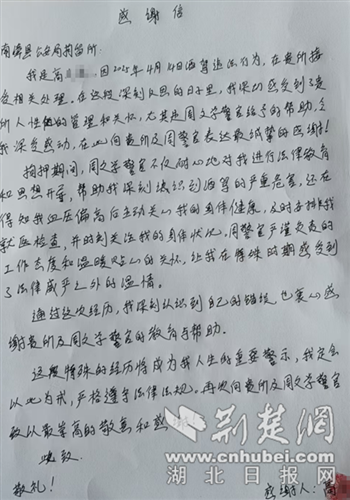 感谢信
南漳县公安局拘留所：
我是高 因2025年4月4日酒驾违法行为，在贵所接
受相关处理。在这段深刻反思的日子里，我深切感受到了贵
所人性化的管理和关怀，尤其是周文学警官给予的帮助，令
我深受感动，在此向贵所及周警官表达最诚挚的感谢！
拘押期间，周文学警官不仅耐心地对我进行法律教育
和思想开导，帮助我深刻认识到酒驾的严重危害，还在
得知我血压偏高后主动关心我的身体健康，及时安排我
就医检查，并时刻关注我的身体状况。周警官严谨负责的
工作态度和温暖贴心的关怀，让我在特殊时期感受到
了法律威严之外的温情。
通过这次经历，我深刻认识到自己的错误，也衷心感
谢贵所及周文学警官的教育与帮助。
这段特殊的经历将成为我人生的重要警示，我定会
以此为戒，严格遵守法律法规。再次向贵所及周文学警官
致以最崇高的敬意和感谢
此致
敬礼！
感谢人：高
荆楚网
www.cnhubei.com
湖北日报网